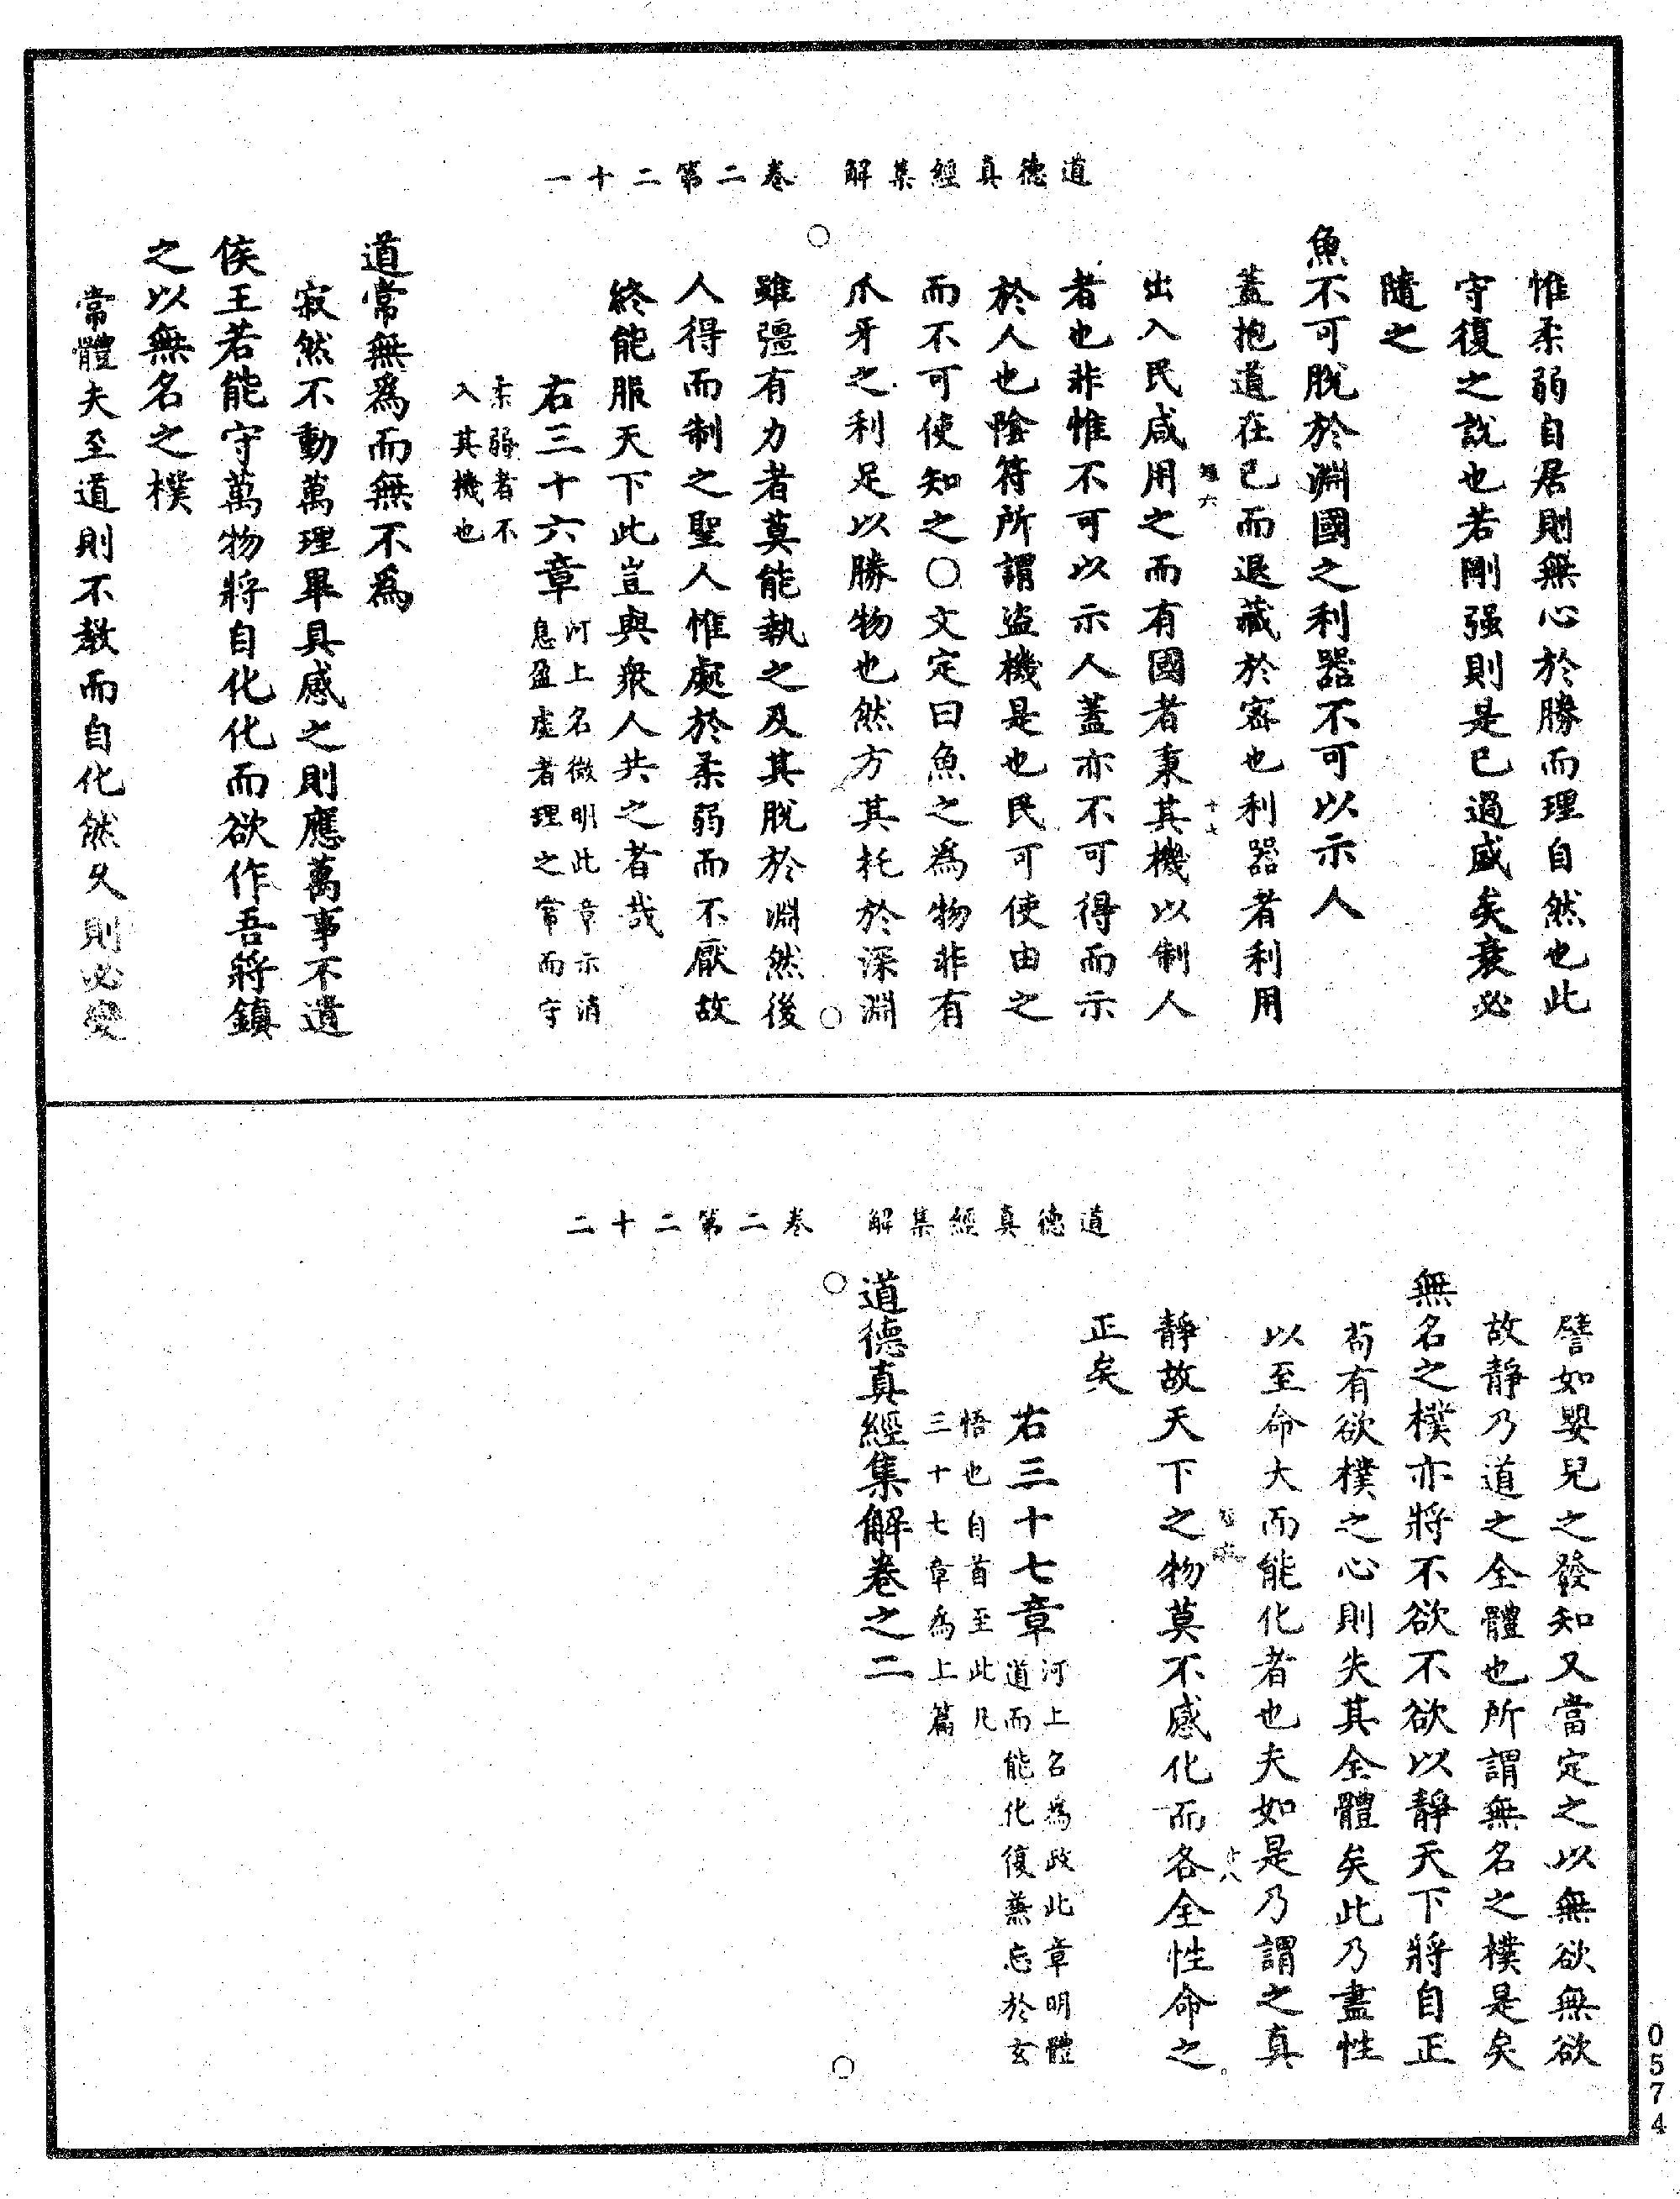 道德真經集解　卷二第二十一
惟柔弱自居則無心於勝而理自然也此
守復之說也若剛强則是已過盛矣衰必
隨之
魚不可脫於淵國之利器不可以示人
蓋抱道在己而退藏於密也利器者利用
出入民咸用之而有國者秉其機以制人
者也非惟不可以示人蓋亦不可得而示
於人也陰符所謂盜機是也民可使由之
而不可使知之○文定曰魚之為物非有
爪牙之利足以勝物也然方其托於深淵
雖彊有力者莫能執之及其脫於淵然後
人得而制之聖人惟處於柔弱而不厭故
終能服天下此豈與衆人共之者哉
右三十六章河上名微明此章示消
息盈虛者理之常而守
柔弱者不
入其機也
道常無為而無不為
寂然不動萬理畢具感之則應萬事不遺
侯王若能守萬物將自化化而欲作吾將鎮
之以無名之樸
常體夫至道則不教而自化然久則必變
道德真經集解　卷二第二十二
譬如嬰兒之發知又當定之以無欲無欲
故靜乃道之全體也所謂無名之樸是矣
無名之樸亦將不欲不欲以靜天下將自正
苟有欲樸之心則失其全體矣此乃盡性
以至命大而能化者也夫如是乃謂之真
靜故天下之物莫不感化而各全性命之
正矣
右三十七章河上名為政此章明體
道而能化復兼忘於玄
悟也自首至此凡
三十七章為上篇
道德真經集解卷之二
0574